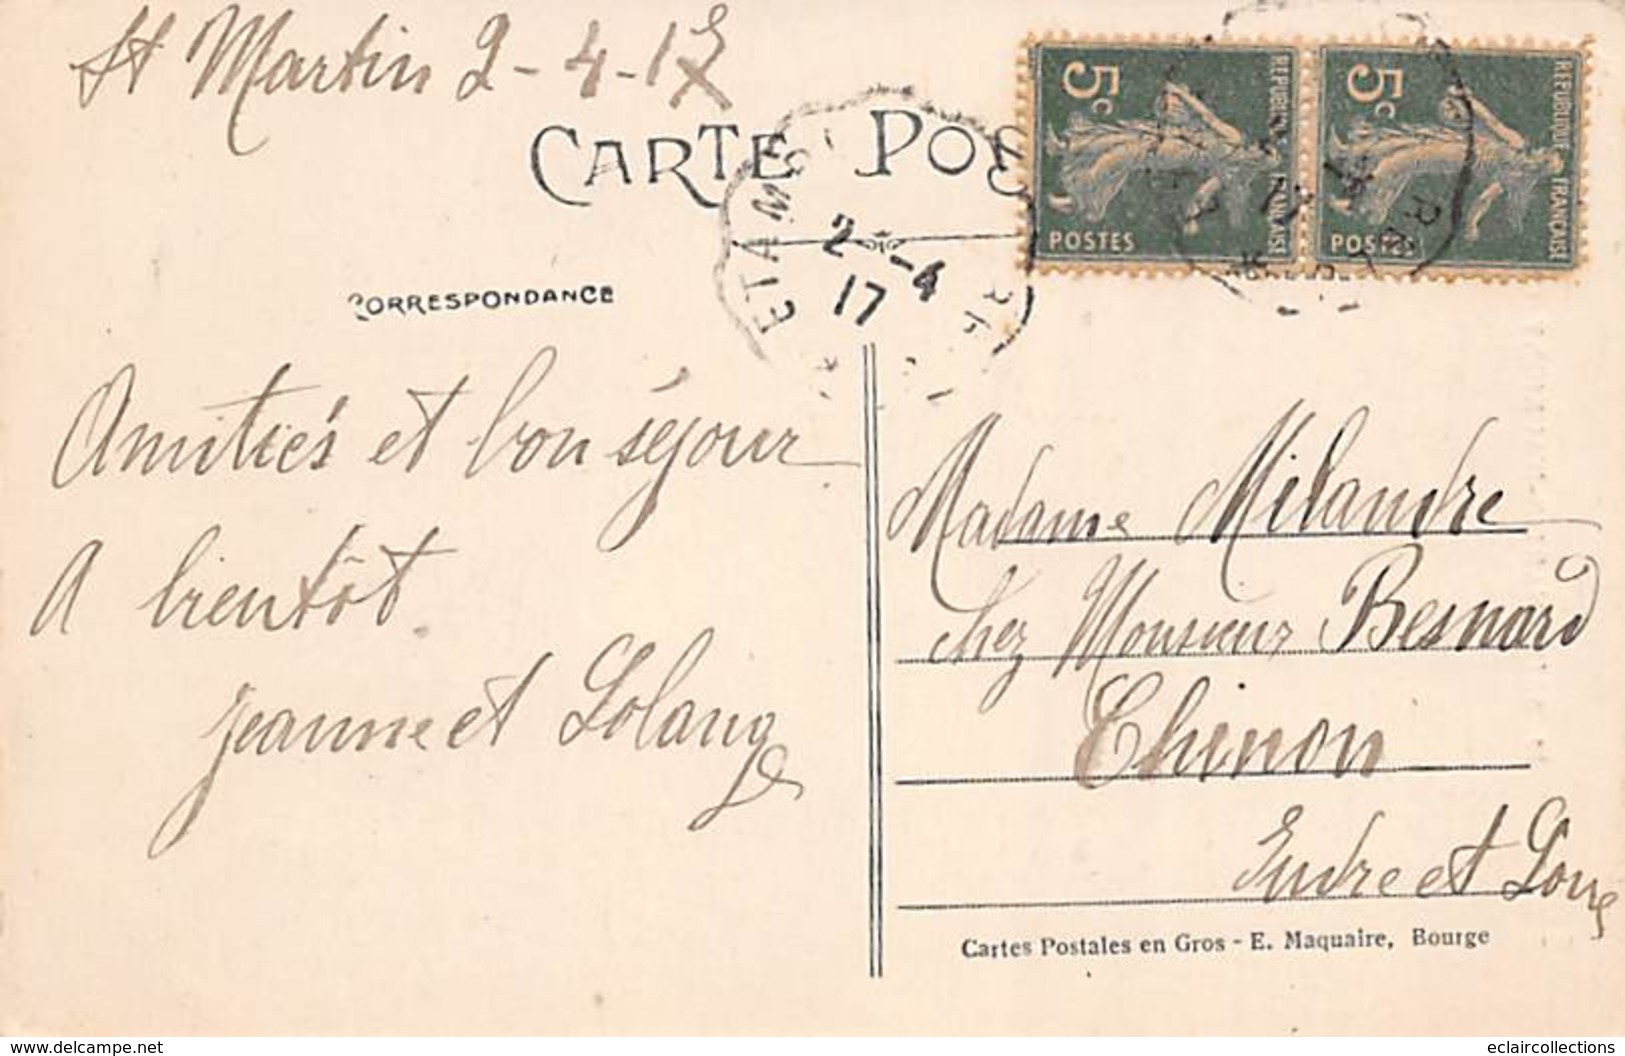 St Martin 2-4-17
CARTE POS
5c
REPUBLIQUE FRANÇAISE
POSTES
5c
REPUBLIQUE FRANÇAISE
POSTES
ETAMP
2-4
17
CORRESPONDANCE
Amitiés et bon séjour
A bientôt.
Jeanne et Solange
Madame Milandre
chez Monsieur Besnard
Chinon
Indre et Loire
Cartes Postales en Gros - E. Maquaire, Bourge
www.delcampe.net
eclaircollections